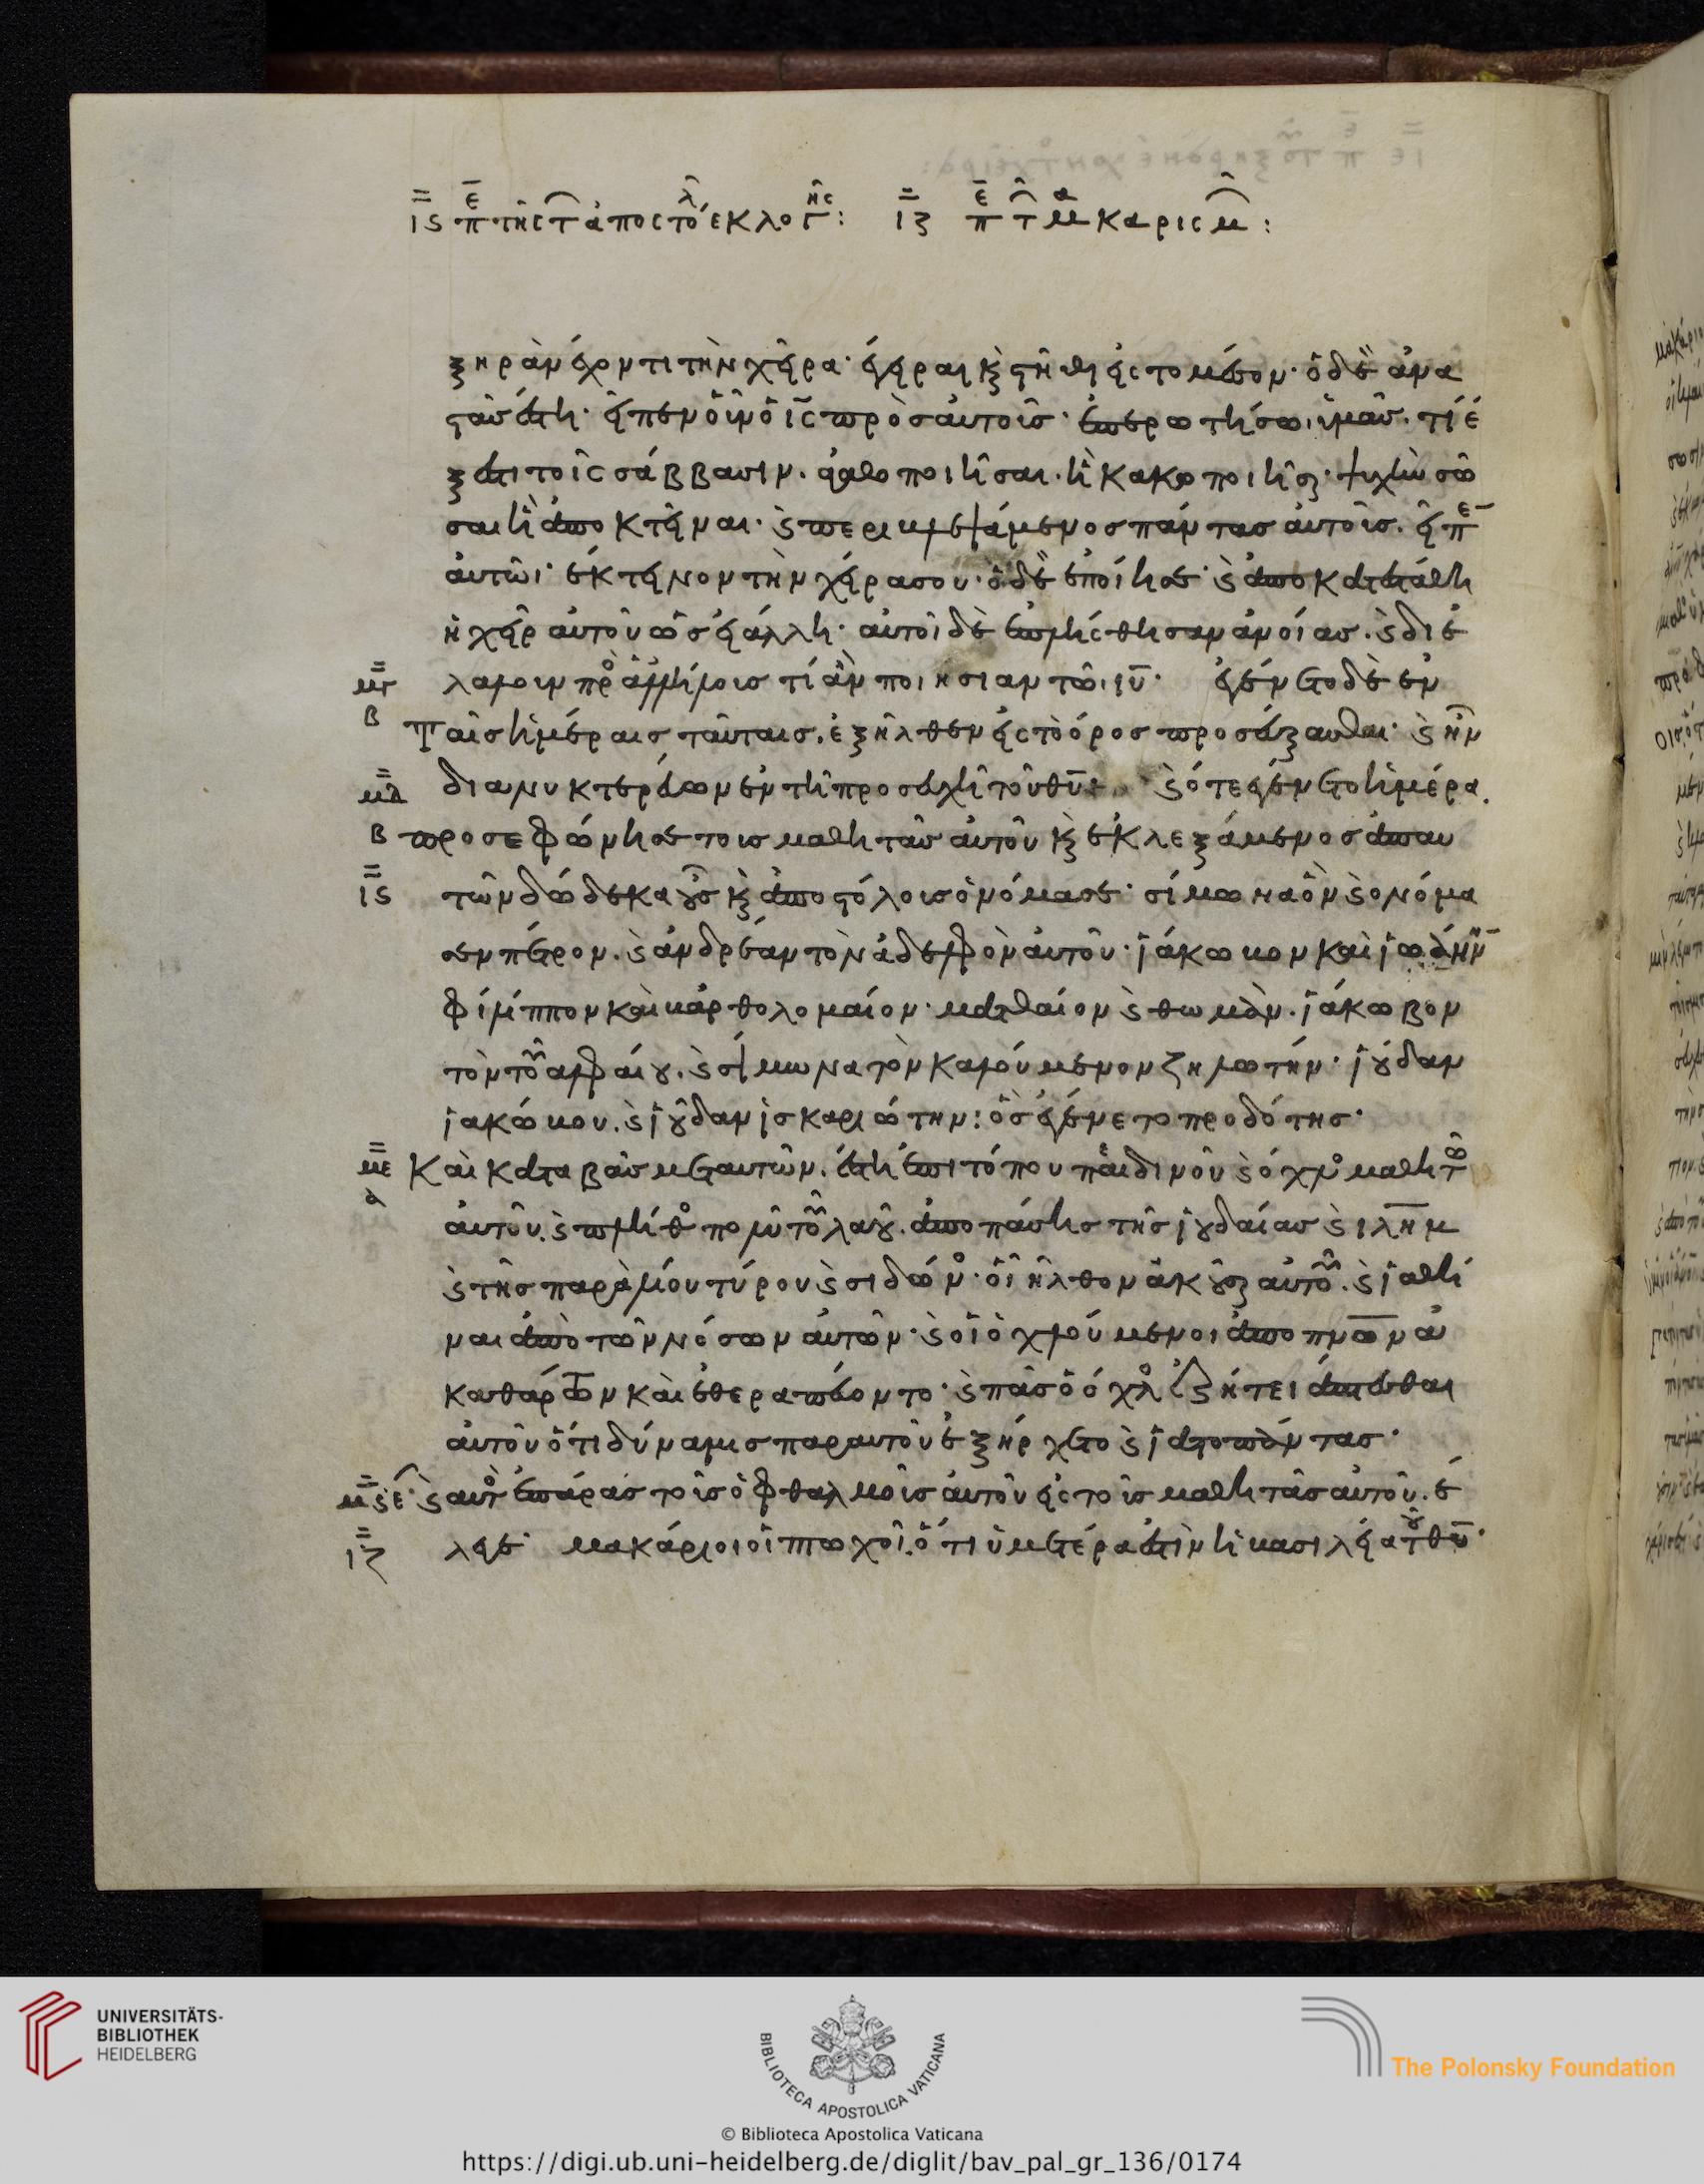 ις πε τῆς τ ἀποστολ εκλογῆς: ιζ πε τ μακαρισμ:
ξηρὰν ἔχοντι τὴν χεῖρα· ἔγειραι κ στῆθι εἰς το μέσον· ὁ δὲ ἀνα
στὰς ἔστη· εἶπεν οὖν ὁ ις πρὸς αὐτοὺς· ἐπερωτήσω ὑμᾶς. τί ἔ
ξεστι τοῖς σάββασιν. ἀγαθοποιῆσαι. ἢ κακοποιῆσαι· ψυχὴν σῶ
σαι ἢ ἀποκτεῖναι· κ περιβλεψάμενος πάντας αὐτοὺς. εἶπε
αὐτῶι· ἔκτεινον τὴν χεῖρα σου· ὁ δὲ ἐποίησε· κ ἀποκατεστάθη
ἡ χεὶρ αὐτοῦ ὡς ἡ ἄλλη· αὐτοὶ δὲ ἐπλήσθησαν ἀνοίας. κ διε
μγ λαλουν πρ ἀλλήλους τί ἂν ποιήσιαν τῶ ιυ· ἐγένετο δὲ ἐν
β ταῖς ἡμέραις ταύταις. ἐξῆλθεν εἰς τὸ ὄρος προσεύξασθαι· κ ἦν
μδ διανυκτερεύων ἐν τῆ προσευχῆ τοῦ θυ· κ ότε ἐγένετο ἡμέρα.
β προσεφώνησε τους μαθητὰς αὐτοῦ κ ἐκλεξάμενος ἀπ αυ
ις τῶν δώδεκα οὓς κ ἀποστόλους ὀνόμασε· σίμωνα ὃν κ ονόμα
σεν πέτρον. κ ἀνδρέαν τὸν ἀδελφὸν αὐτοῦ· ἰάκωβον καὶ ἰωάνην
φίλιππον καὶ βαρθολομαίον· ματθαίον κ θωμὰν. ἰάκωβον
τὸν τοῦ αλφαίου. κ σίμωνα τὸν καλούμενον ζηλωτήν· ἰούδαν
ἰακώβου. κ ἰούδαν ἰσκαριώτην: ὃς ἐγένετο προδότης·
με Καὶ καταβὰς μετ αυτῶν. ἔστη ἐπι τόπου πεδινοῦ κ όχλο μαθητῶ
α αὐτοῦ. κ πλήθο πολὺ τοῦ λαοῦ. ἀπο πάσης τῆς ἰουδαίας κ ιλημ
κ τῆς παραλίου τύρου κ σιδώνο· οἳ ἦλθον ἀκοῦσαι αὐτοῦ. κ ἰαθῆ
ναι ἀπὸ τῶν νόσων αὐτῶν· κ οἱ ὀχλούμενοι ἀπο πνων ἀ
καθάρτων καὶ ἐθεραπεύοντο· κ πᾶς ὁ όχλο ἐζήτει ἅπτεσθαι
αὐτοῦ ὅτι δύναμις παρ αυτοῦ ἐξήρχετο κ ἰᾶτο πὰντας·
μς ε κ αὐτο ἐπάρας τοὺς ὀφθαλμοὺς αὐτοῦ εἰς τοὺς μαθητὰς αὐτοῦ. έ
ιζ λεγε· μακάριοι οἱ πτωχοὶ. ὅτι ὑμετέρα ἐστὶν ἡ βασιλεία τοῦ θυ·
UNIVERSITÄTS-
BIBLIOTHEK
HEIDELBERG
BIBLIOTECA APOSTOLICA VATICANA
The Polonsky Foundation
© Biblioteca Apostolica Vaticana
https://digi.ub.uni-heidelberg.de/diglit/bav_pal_gr_136/0174